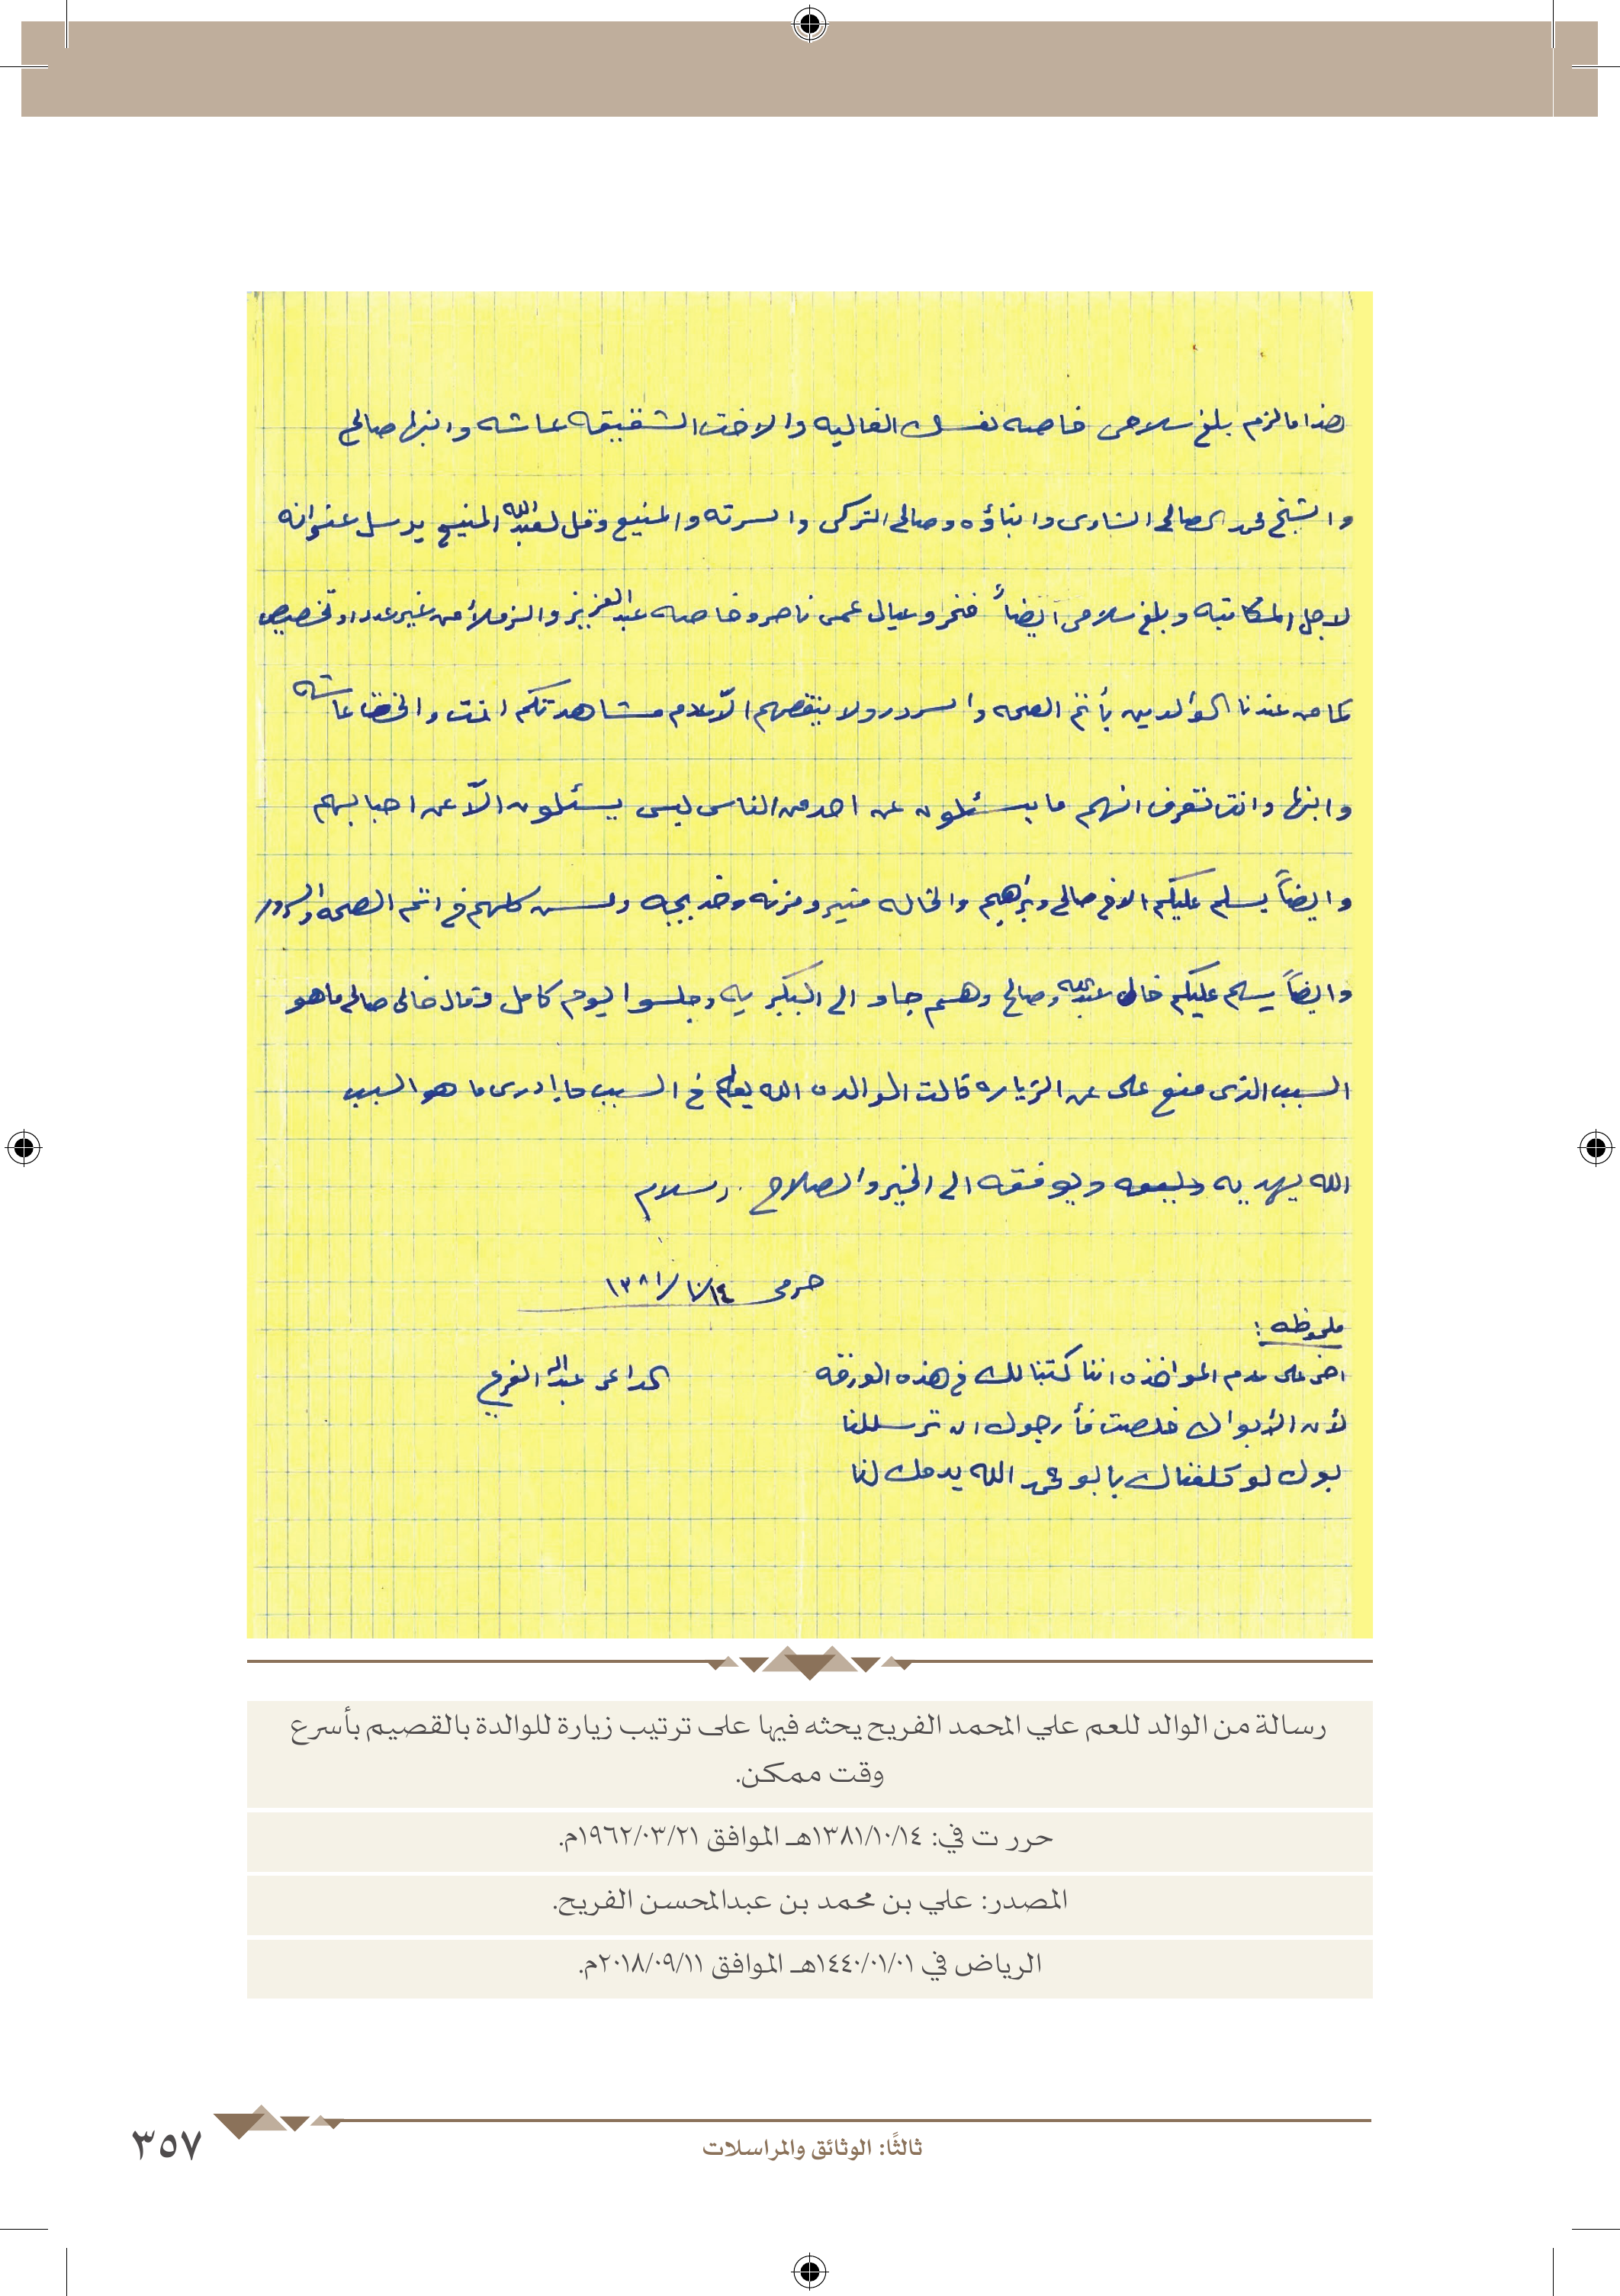 هذا مالزم بلغ سلامى خاصه نفسك الغاليه والاخت الشقيقه عاشه وابنها صالح
والشيخ محمد الصالح الشاوى وابناؤه وصالح التركى والسرته والمنيع وقل لعبدالله المنيع يرسل عنوانه
لاجل المكاتبه وبلغ سلامى ايضاً فنخر وعيال عمى ناصر وخاصه عبدالعزيز والزملأ من غير عدد او تخصيص
كما من عندنا الوالدين بأتم الصحه والسرور ولا ينقصهم الاّ عدم مشاهدتكم انت والاخت عاشه
وابنها وانت تعرف انهم ما يسئلون عن احد من الناس ليس يسئلون الاّ عن احبابهم
وايضاً يسلم عليكم الاخ صالح وبرهيم والخاله منيره ومزنه وخديجه وكلهم في اتم الصحه والسرور
وايضاً يسلم عليكم خالى عبدالله وصالح وهم جاو الى البكيريه وجلسوا ليوم كامل وقال خالى صالح ماهو
السبب الذى منع على عن الزياره قالت الوالده الله يعلم في السبب ما ادرى ما هو السبب
الله يهديه ويوفقه الى الخير والصلاح والسلام
حرمى ١٣٨١/١٠/١٤
ملحوظه :
اخى على عدم المواخذه اننا كتبنا لك في هذه الورقه
الداعى عبدالله الفريح
لأن الأبواك خلصت فأرجوك ان ترسل لنا
بوك لو كلفناك يا بو محمد الله يدمك لنا
رسالة من الوالد للعم علي المحمد الفريح يحثه فيها على ترتيب زيارة للوالدة بالقصيم بأسرع
وقت ممكن.
حررت في: ١٣٨١/١٠/١٤هـ الموافق ١٩٦٢/٠٣/٢١م.
المصدر: علي بن محمد بن عبدالمحسن الفريح.
الرياض في ١٤٤٠/٠١/٠١هـ الموافق ٢٠١٨/٠٩/١١م.
ثالثًا: الوثائق والمراسلات
٣٥٧